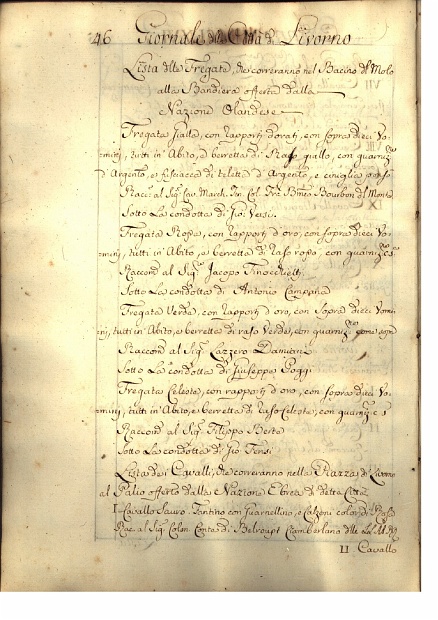 46 Giornale della Città di Livorno
Lista delle Fregate, che correranno nel Bacino del Molo
alla Bandiera offerta dalla
Nazione Olandese
Fregata Gialla, con rapporti dorati, con sopra dieci Vo-
mini, tutti in Abito, e berretta di Raso giallo, con guarniz.
d'Argento, e di teletta d'Argento, e
Racc. al Sig. Cav. March. Bourbon del Monte
Sotto La condotta di Gio:
Fregata Rossa, con rapporti d'oro, con sopra dieci Vo-
mini, tutti in Abito, e berretta di raso rosso, con guarniz.
Raccom al Sig. Jacopo Finocchietti
Sotto La condotta di Antonio Campana
Fregata Verde, con rapporti d'oro, con Sopra dieci Vomi
ni, tutti in Abito, e berretta di raso Verde, con guarniz. come sopra
Raccom al Sig. Lazzero Damiani
Sotto La condotta di Giuseppe Poggi
Fregata Celeste, con rapporti d'oro, con sopra dieci Vo-
mini, tutti in Abito, e berretta di raso Celeste, con guarniz. c. s
Raccom al Sig. Filippo Berte
Sotto La condotta di Gio:
Lista de i Cavalli, che correranno nella Piazza di Livorno
al Palio offerto dalla Nazione Ebrea di detta Città
I Cavallo Sauro. Fantino con Guarnellino, e Calzoni color di
Rac. al Sig. Conte di Ciamberlano delle
II. Cavallo